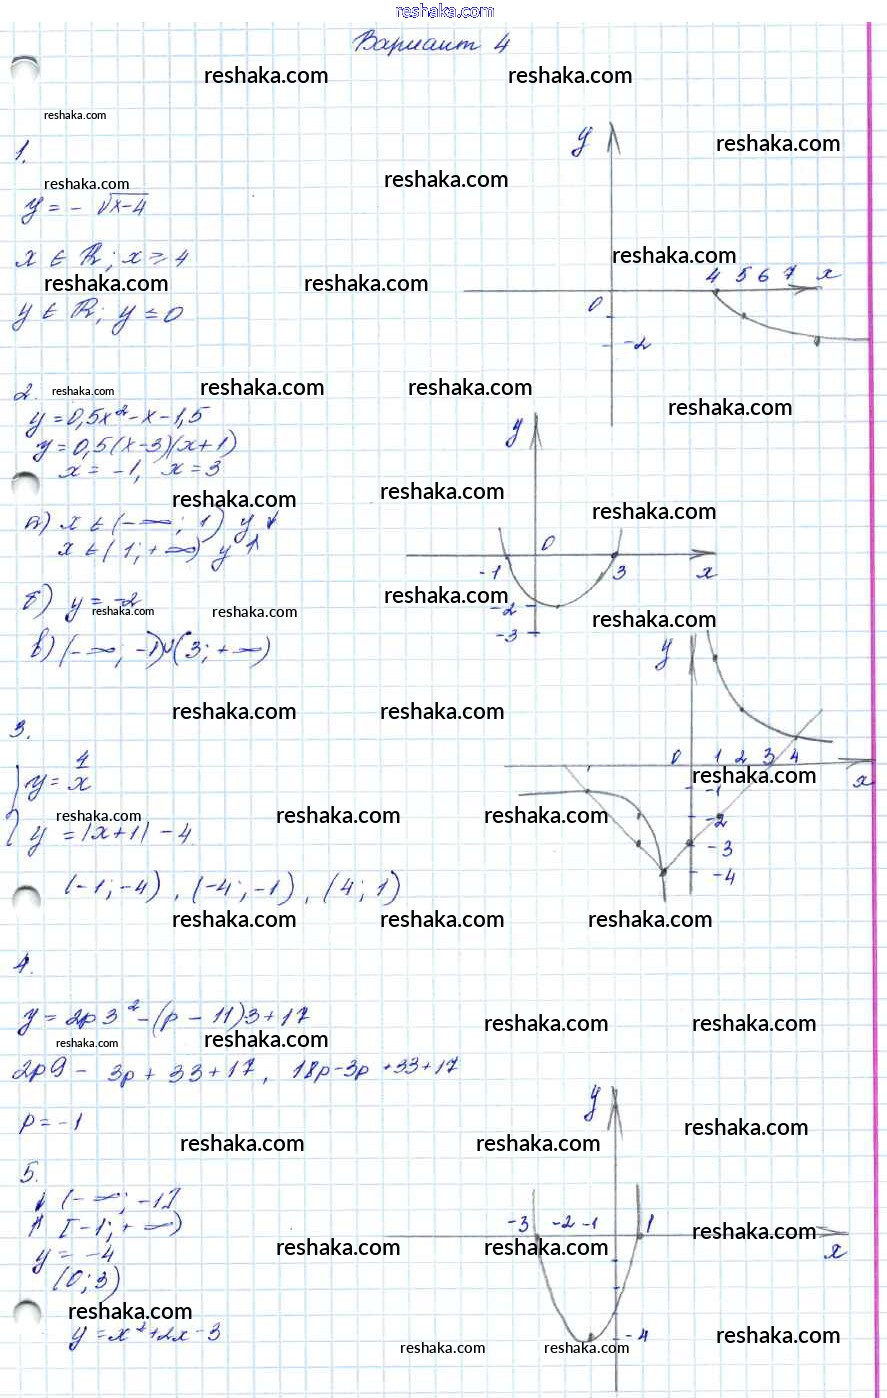 reshaka.com
Вариант 4
reshaka.com reshaka.com
reshaka.com
1.
y
reshaka.com
reshaka.com reshaka.com
y = - √x-4
x ∈ R; x ≥ 4
reshaka.com
4 5 6 7 x
reshaka.com reshaka.com
0
y ∈ R; y ≤ 0
-2
2. reshaka.com reshaka.com reshaka.com
reshaka.com
y = 0,5x² - x - 1,5
y = 0,5(x-3)(x+1)
x = -1, x = 3
y
reshaka.com reshaka.com
reshaka.com
а) x ∈ (-∞; 1) y ↓
x ∈ (1; +∞) y ↑
0
-1 3 x
-2
-3
б) y = -2
reshaka.com reshaka.com reshaka.com
reshaka.com
в) (-∞; -1)∪(3; +∞)
y
reshaka.com reshaka.com
3.
y = 4/x
0 1 2 3 4
reshaka.com x
-1
-2
-3
-4
reshaka.com reshaka.com reshaka.com
y = |x+1| - 4
(-1; -4), (-4; -1), (4; 1)
reshaka.com reshaka.com reshaka.com
4.
y = 2p3² - (p - 11)3 + 17
reshaka.com reshaka.com
reshaka.com reshaka.com
2p9 - 3p + 33 + 17, 18p - 3p + 33 + 17
p = -1
y
reshaka.com reshaka.com reshaka.com
5.
↓ (-∞; -1]
↑ [-1; +∞)
-3 -2 -1 1
reshaka.com
x
y = -4
reshaka.com reshaka.com
(0; 3)
reshaka.com
y = x² + 2x - 3
-4
reshaka.com
reshaka.com reshaka.com